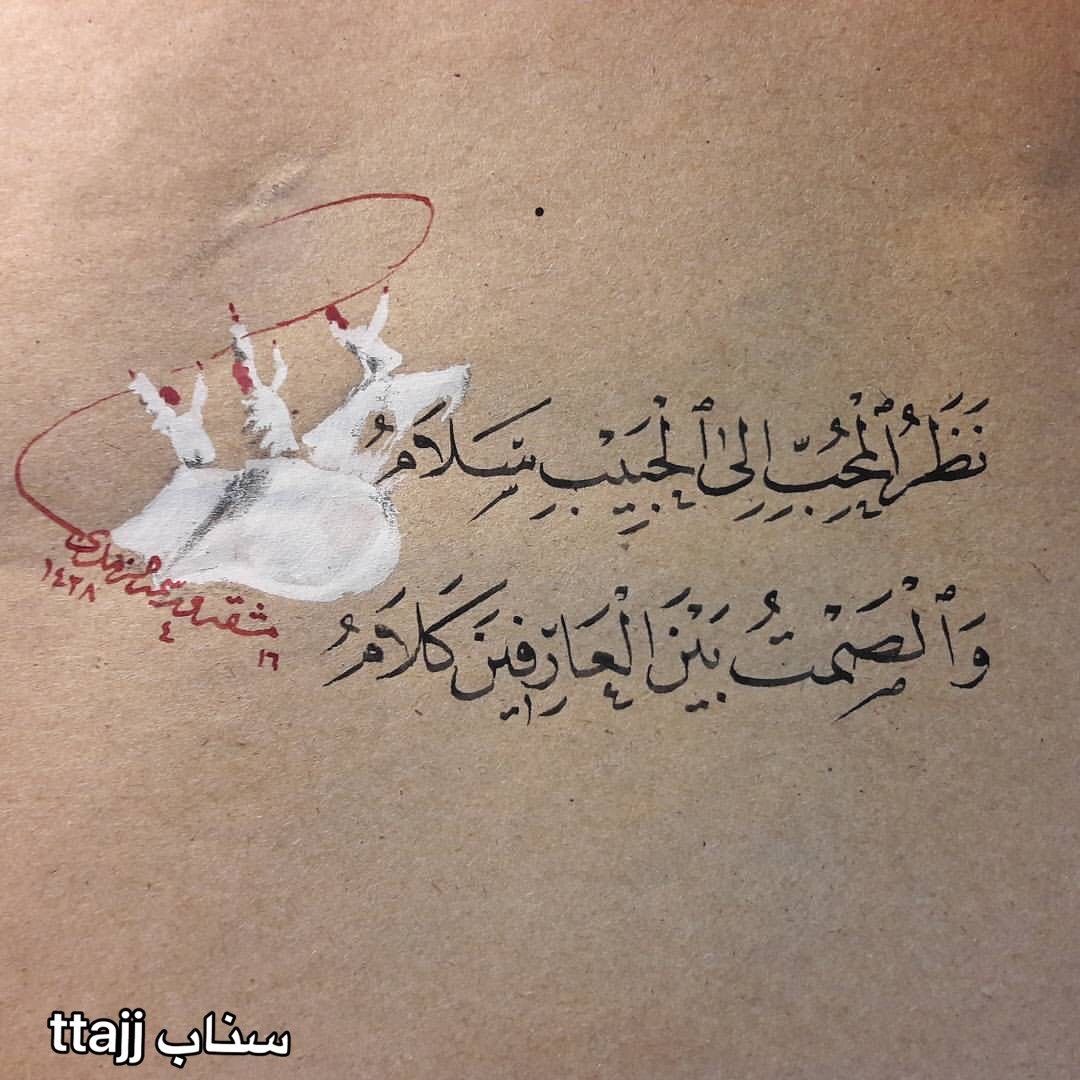 نَظَرُ ٱلْمُحِبِّ إِلىٰ ٱلْحَبِيْبِ سَلَامُ
وَٱلْصَمْتُ بَيْنَ الْعَارِفِينَ كَلَامُ
١٤٣٨
٤
١٦
سناب ttajj